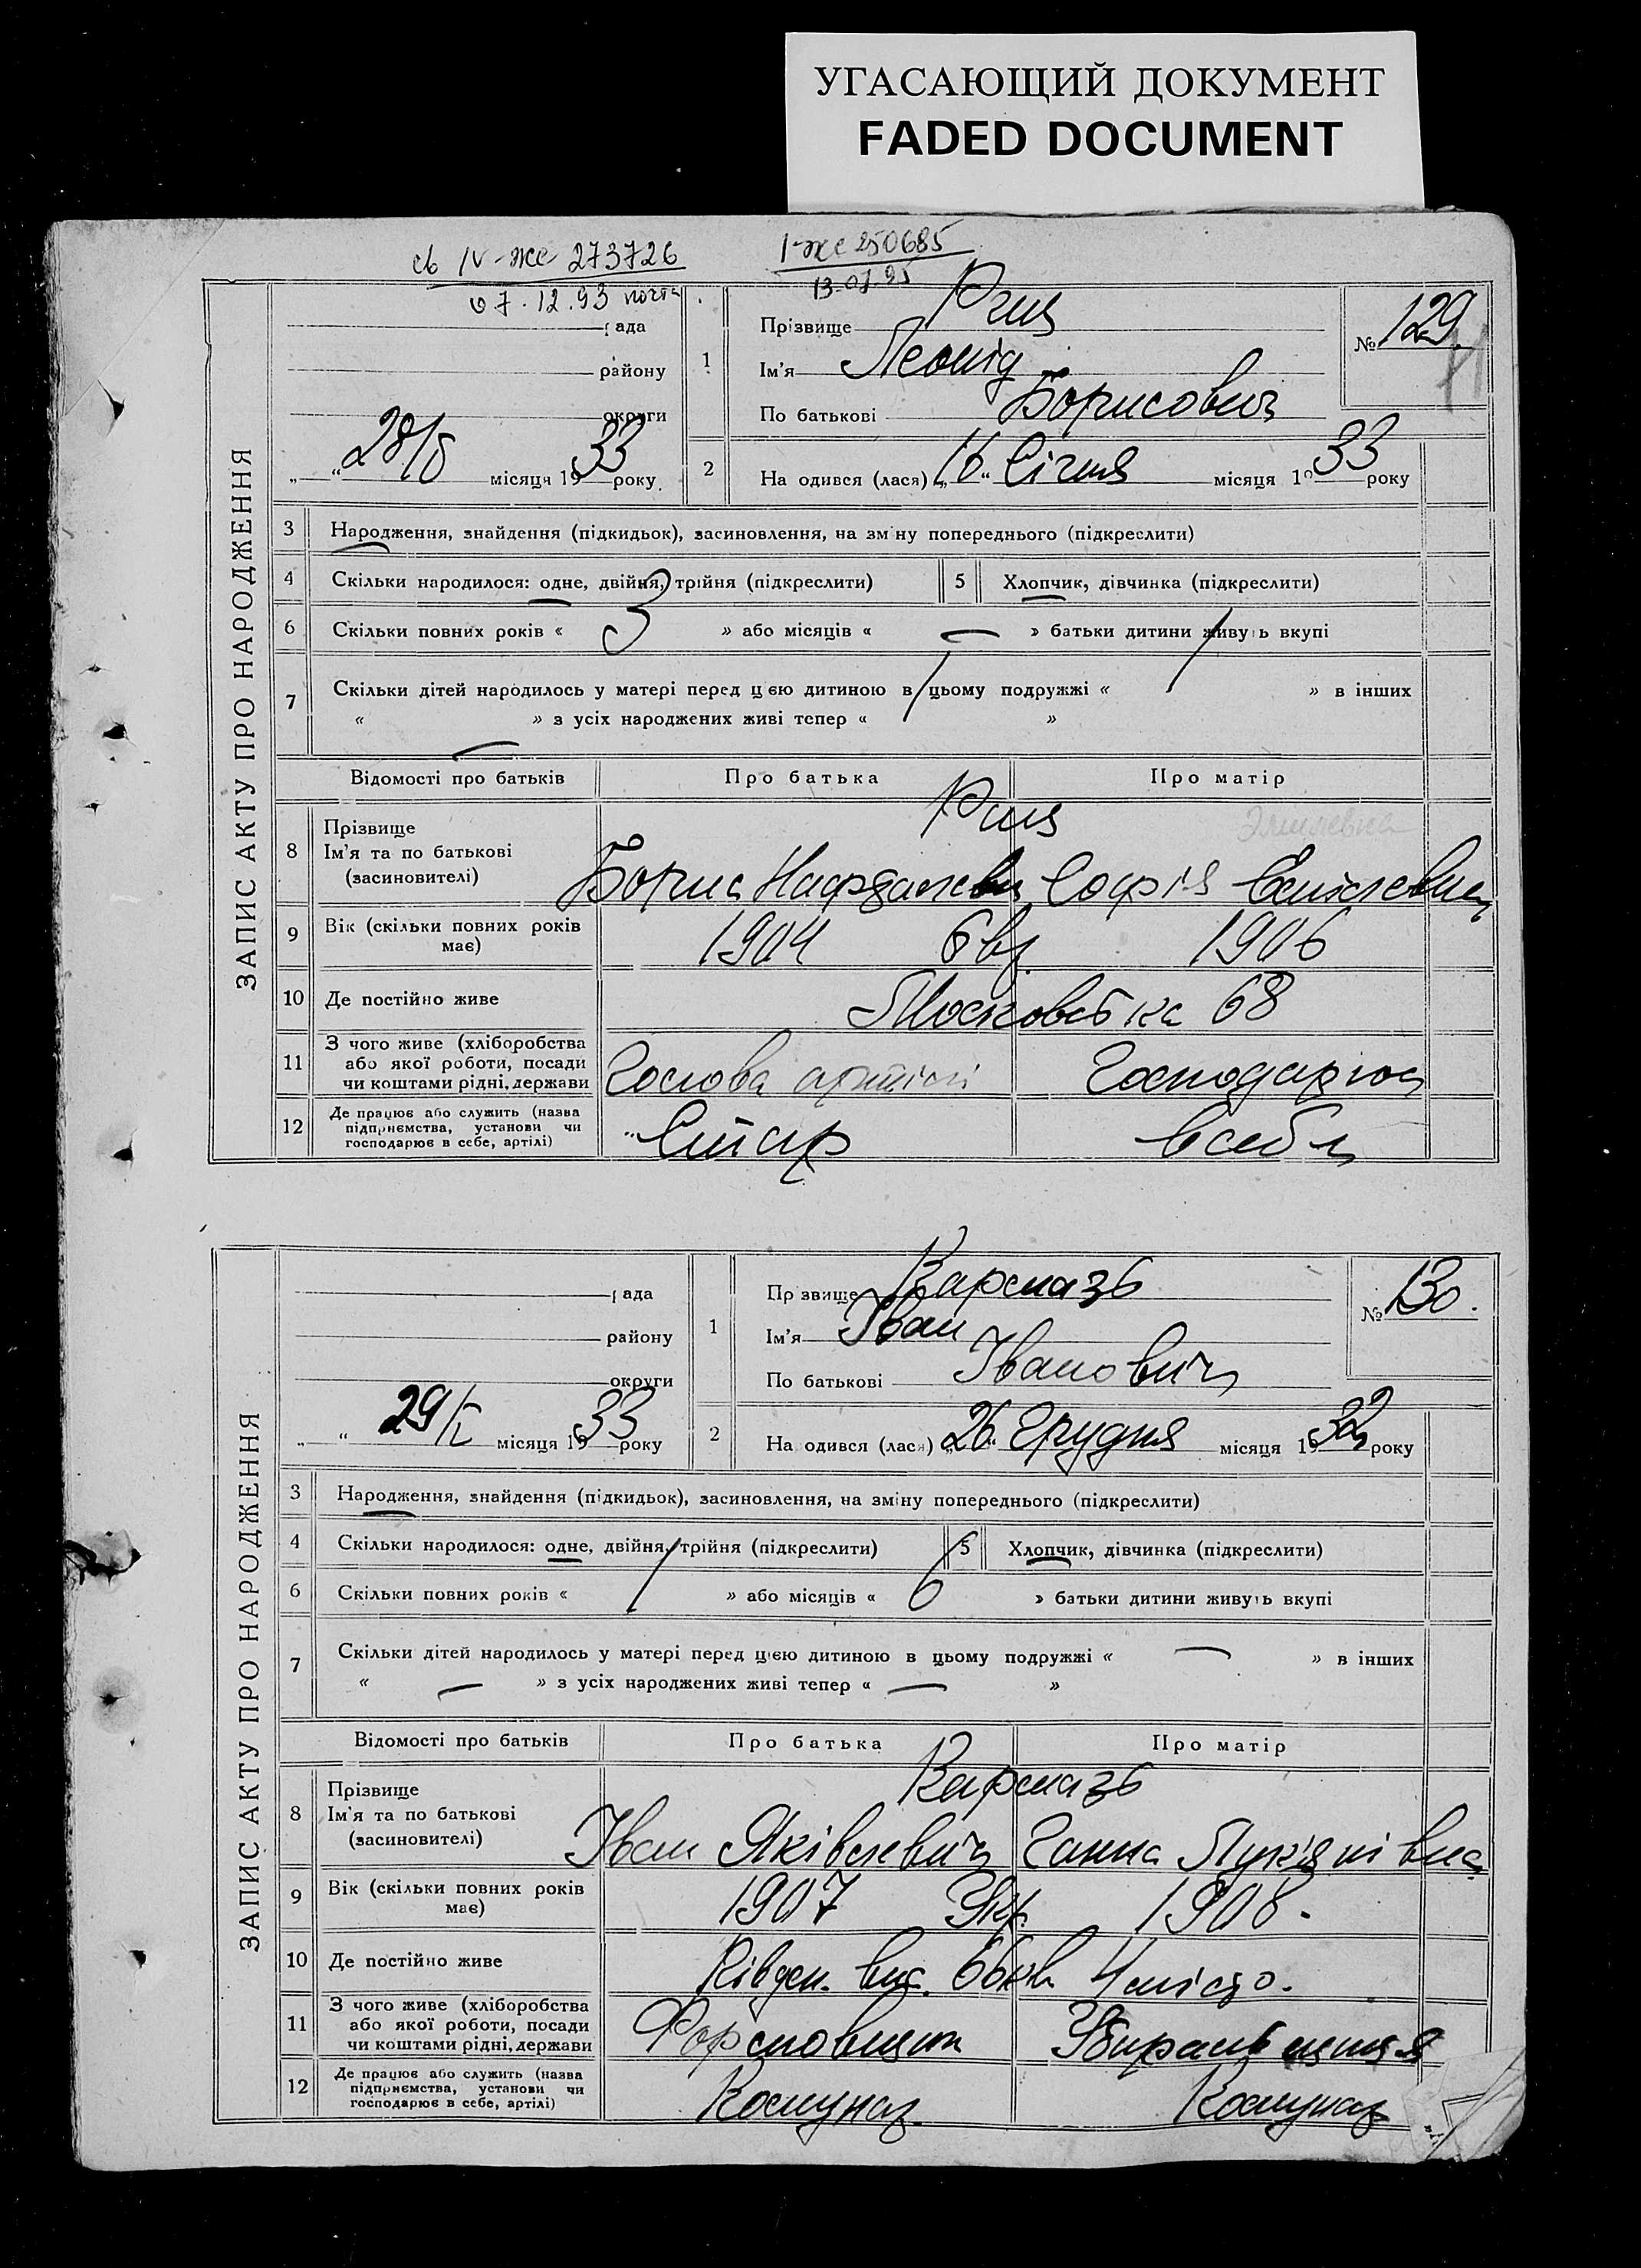 УГАСАЮЩИЙ ДОКУМЕНТ
FADED DOCUMENT
св IV-жс 273726
07.12.93 почта
I-жс 250685
13.07.95
ЗАПИС АКТУ ПРО НАРОДЖЕННЯ
рада
району
округи
„ “ 28/I місяця 1933 року
1
Прізвище Риц
Ім'я Леонід
По батькові Борисович
№ 129.
2
На одився (лася) „16“ Січня місяця 1933 року
3 Народження, знайдення (підкидьок), засиновлення, на зміну попереднього (підкреслити)
4 Скільки народилося: одне, двійня, трійня (підкреслити) 5 Хлопчик, дівчинка (підкреслити)
6 Скільки повних років « 3 » або місяців « — » батьки дитини живуть вкупі
7 Скільки дітей народилось у матері перед цією дитиною в цьому подружжі « » в інших
« » з усіх народжених живі тепер « »
Відомості про батьків Про батька Про матір
8 Прізвище
Ім'я та по батькові
(засиновителі)
Риц
Борис Софія
9 Вік (скільки повних років має) 1904 Євр 1906
10 Де постійно живе Московська 68
11 З чого живе (хліборобства або якої роботи, посади чи коштами рідні, держави Голова артілі Господарює
12 Де працює або служить (назва підприємства, установи чи господарює в себе, артілі) в себе
ЗАПИС АКТУ ПРО НАРОДЖЕННЯ
рада
району
округи
„ “ 29/I місяця 1933 року
1
Пр звище Кармазь
Ім'я Іван
По батькові Іванович
№ 130.
2
На одився (лася) „26“ Грудня місяця 1932 року
3 Народження, знайдення (підкидьок), засиновлення, на зміну попереднього (підкреслити)
4 Скільки народилося: одне, двійня, трійня (підкреслити) 5 Хлопчик, дівчинка (підкреслити)
6 Скільки повних років « 1 » або місяців « 6 » батьки дитини живуть вкупі
7 Скільки дітей народилось у матері перед цією дитиною в цьому подружжі « — » в інших
« — » з усіх народжених живі тепер « — »
Відомості про батьків Про батька Про матір
8 Прізвище
Ім'я та по батькові
(засиновителі)
Кармазь
Іван Яківлевич Ганна Лук'янівна
9 Вік (скільки повних років має) 1907 Укр. 1908.
10 Де постійно живе Півден.
11 З чого живе (хліборобства або якої роботи, посади чи коштами рідні, держави Формовщик Збиральниця
12 Де працює або служить (назва підприємства, установи чи господарює в себе, артілі) Комунар Комунар